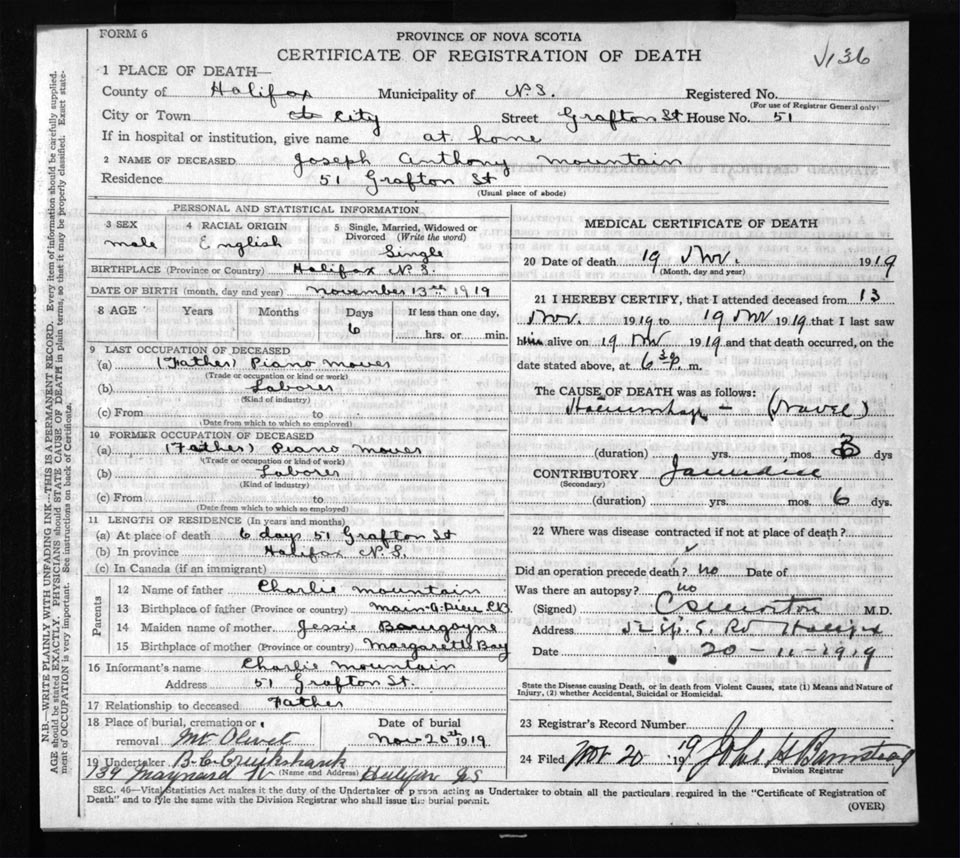 FORM 6
PROVINCE OF NOVA SCOTIA
CERTIFICATE OF REGISTRATION OF DEATH
1 PLACE OF DEATH—
County of Halifax Municipality of N.S. Registered No.
(For use of Registrar General only)
City or Town City Street Grafton St House No. 51
If in hospital or institution, give name at home
2 NAME OF DECEASED Joseph Anthony Mountain
Residence 51 Grafton St
(Usual place of abode)
PERSONAL AND STATISTICAL INFORMATION
3 SEX 4 RACIAL ORIGIN 5 Single, Married, Widowed or
Divorced (Write the word)
male English Single
BIRTHPLACE (Province or Country) Halifax N.S.
DATE OF BIRTH (month, day and year) November 13th 1919
8 AGE Years Months Days If less than one day,
6 hrs. or min.
9 LAST OCCUPATION OF DECEASED
(a) (Father) Piano mover
(Trade or occupation or kind or work)
(b) Laborer
(Kind of industry)
(c) From to
(Date from which to which so employed)
10 FORMER OCCUPATION OF DECEASED
(a) (Father) Piano mover
(Trade or occupation or kind of work)
(b) Laborer
(Kind of industry)
(c) From to
(Date from which to which so employed)
11 LENGTH OF RESIDENCE (In years and months)
(a) At place of death 6 days 51 Grafton St
(b) In province Halifax N.S.
(c) In Canada (if an immigrant)
Parents
12 Name of father Charlie Mountain
13 Birthplace of father (Province or country) Main-a-Dieu C.B.
14 Maiden name of mother Jessie Bourgoyne
15 Birthplace of mother (Province or country) Margarets Bay
16 Informant's name Charlie Mountain
Address 51 Grafton St.
17 Relationship to deceased Father
18 Place of burial, cremation or Date of burial
removal Mt Olivet Nov 20th 1919
19 Undertaker B.E. Cruikshank
139 Maynard St (Name and Address) Halifax N.S
MEDICAL CERTIFICATE OF DEATH
20 Date of death 19 Nov. 1919
(Month, day and year)
21 I HEREBY CERTIFY, that I attended deceased from 13
Nov. 1919 to 19 Nov 1919 that I last saw
him alive on 19 Nov 1919 and that death occurred, on the
date stated above, at 6 30 p. m.
The CAUSE OF DEATH was as follows:
Haemorrhage - (Navel)
(duration) yrs. mos. 3 dys
CONTRIBUTORY Jaundice
(Secondary)
(duration) yrs. mos. 6 dys.
22 Where was disease contracted if not at place of death?
Did an operation precede death? no Date of
Was there an autopsy? no
(Signed) M.D.
Address Halifax
Date 20-11-1919
State the Disease causing Death, or in death from Violent Causes, state (1) Means and Nature of
Injury, (2) whether Accidental, Suicidal or Homicidal.
23 Registrar's Record Number
24 Filed Nov 20 1919 John H Barnstead
Division Registrar
SEC. 46—Vital Statistics Act makes it the duty of the Undertaker of person acting as Undertaker to obtain all the particulars required in the "Certificate of Registration of
Death" and to fyle the same with the Division Registrar who shall issue the burial permit.
(OVER)
N.B.—WRITE PLAINLY WITH UNFADING INK—THIS IS A PERMANENT RECORD. Every item of information should be carefully supplied.
AGE should be stated EXACTLY. PHYSICIANS should STATE CAUSE OF DEATH in plain terms, so that it may be properly classified. Exact state-
ment of OCCUPATION is very important. See instructions on back of Certificate.